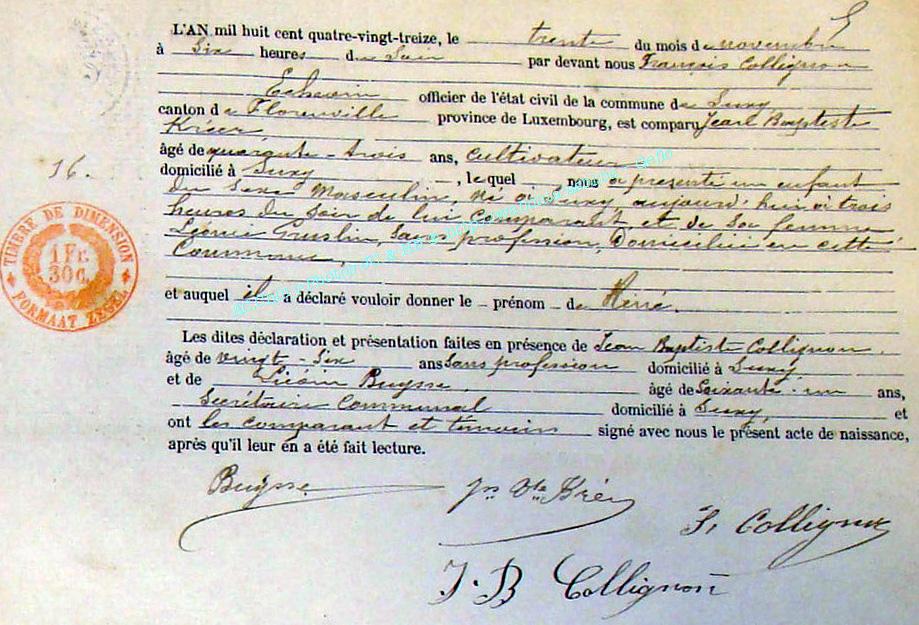 L'AN mil huit cent quatre-vingt-treize, le trente du mois de novembre
à six heures du soir par devant nous François Collignon
Echevin officier de l'état civil de la commune de Suxy,
canton de Florenville province de Luxembourg, est comparu Jean Baptiste
âgé de quarante-trois ans, cultivateur
16.
domicilié à Suxy, lequel nous a présenté un enfant
du sexe masculin, né à Suxy, aujourd'hui à trois
heures du soir de lui comparant et de sa femme
sans profession, domiciliée en cette
Commune,
TIMBRE DE DIMENSION
1 FR.
30 C.
FORMAAT ZEGEL
et auquel il a déclaré vouloir donner le prénom de
Les dites déclaration et présentation faites en présence de Jean Baptiste Collignon,
âgé de vingt-six ans sans profession domicilié à Suxy,
et de Buysse, âgé de soixante-un ans,
Secrétaire Communal domicilié à Suxy, et
ont les comparant et témoins signé avec nous le présent acte de naissance,
après qu'il leur en a été fait lecture.
Buysse
Jn Bte
F. Collignon
J. B Collignon